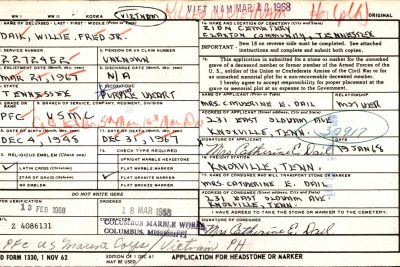 WW I WW II KOREA VIETNAM VIET NAM MAR 28 1968 ORIGINAL
NAME OF DECEASED - LAST - FIRST - MIDDLE
DAIL, WILLIE, FRED JR.
NAME AND LOCATION OF CEMETERY
ZION CEMETERY
CLAXTON COMMUNITY, TENNESSEE
SERVICE NUMBER PENSION OR VA CLAIM NUMBER
2272452 UNKNOWN
Item 18 on reverse side must be completed. See attached instructions and complete and submit both copies.
ENLISTMENT DATE DISCHARGE DATE
MAR 21, 1967 N/A
This application is submitted for a stone or marker for the unmarked grave of a deceased member or former member of the Armed Forces of the U. S., soldier of the Union or Confederate Armies of the Civil War or for an unmarked memorial plot for a non-recoverable deceased member.
I hereby agree to accept responsibility for proper placement at the grave or memorial plot at no expense to the Government.
STATE DECORATIONS
TENNESSEE PURPLE HEART
MRS. CATHERINE E. DAIL MOTHER
GRADE OR RANK BRANCH OF SERVICE, COMPANY, REGIMENT, DIVISION
PFC USMC
231 EAST OLDHAM AVE
KNOXVILLE, TENN. 37917
DATE OF BIRTH DATE OF DEATH
DEC 4, 1948 DEC 31, 1967
SIGNATURE OF APPLICANT DATE
Mrs Catherine E. Dail 19 JAN 68
RELIGIOUS EMBLEM (Check one) CHECK TYPE REQUIRED
UPRIGHT MARBLE HEADSTONE
LATIN CROSS (Christian) FLAT MARBLE MARKER
FLAT GRANITE MARKER
NO EMBLEM FLAT BRONZE MARKER
FREIGHT STATION
KNOXVILLE, TENN.
NAME OF CONSIGNEE WHO WILL TRANSPORT STONE OR MARKER
MRS. CATHERINE E. DAIL
DO NOT WRITE HERE
13 FEB 1968 18 MAR 1968
ADDRESS OF CONSIGNEE
231 EAST OLDHAM AVE
KNOXVILLE, TENN.
2 4086131 COLUMBUS MARBLE WORKS
COLUMBUS, MISSISSIPPI
I HAVE AGREED TO TAKE THE STONE OR MARKER TO THE CEMETERY.
SIGNATURE OF CONSIGNEE
Mrs Catherine E Dail
PFC US Marine Corps / Vietnam PH
FORM 1330, 1 NOV 62 APPLICATION FOR HEADSTONE OR MARKER